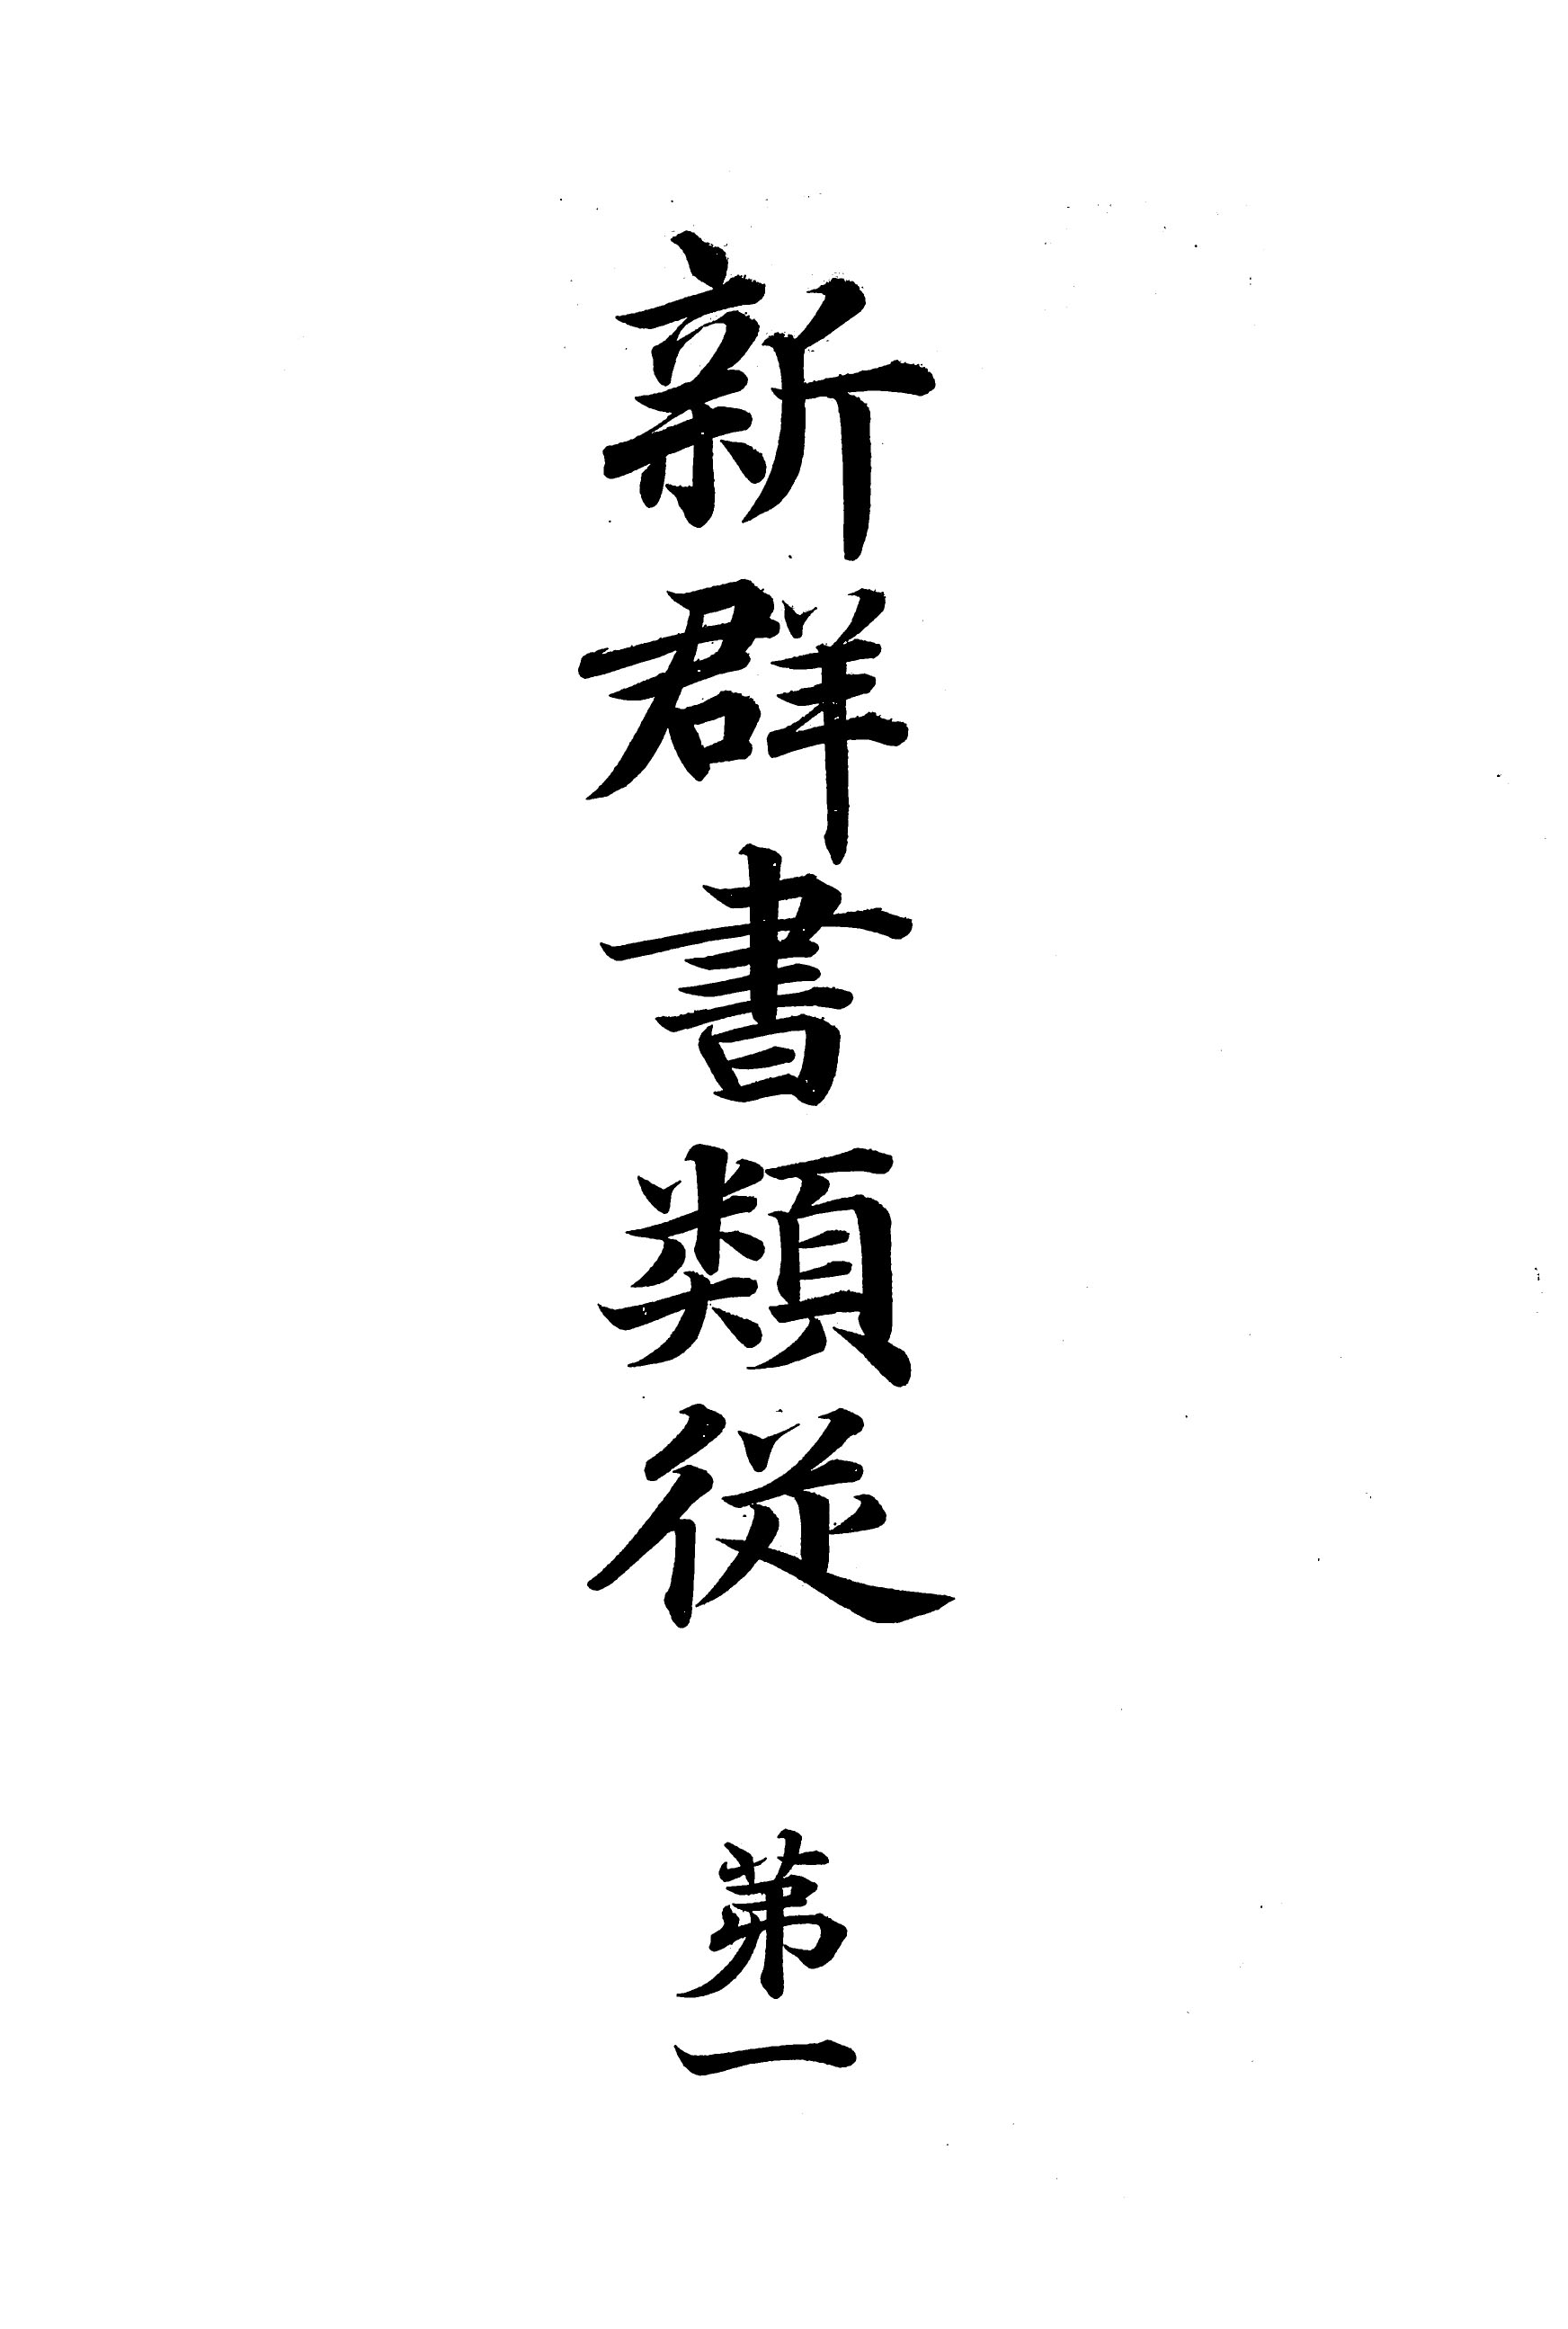 新群書類従 第一